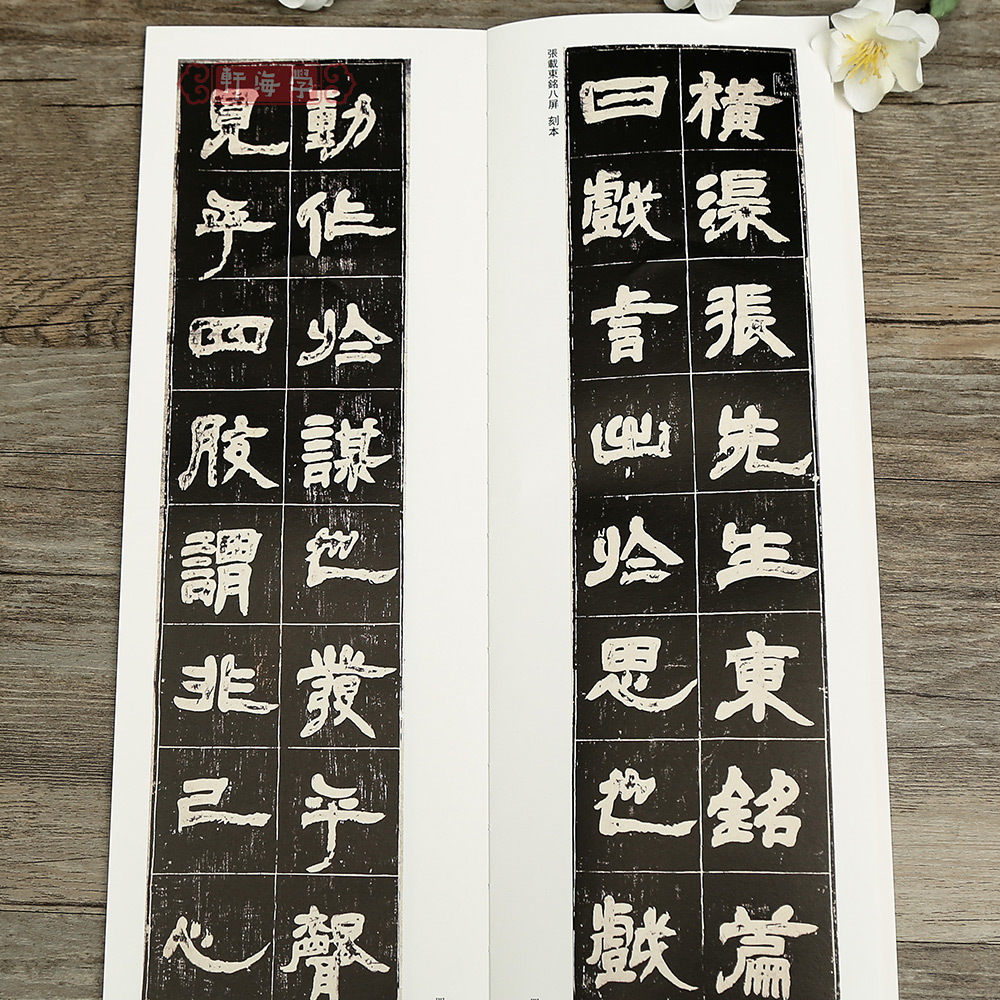 橫渠張先生東銘篇
曰戲言出於思也戲
張載東銘八屏 刻本
動作於謀也發乎聲
見乎四肢謂非己心
學海軒